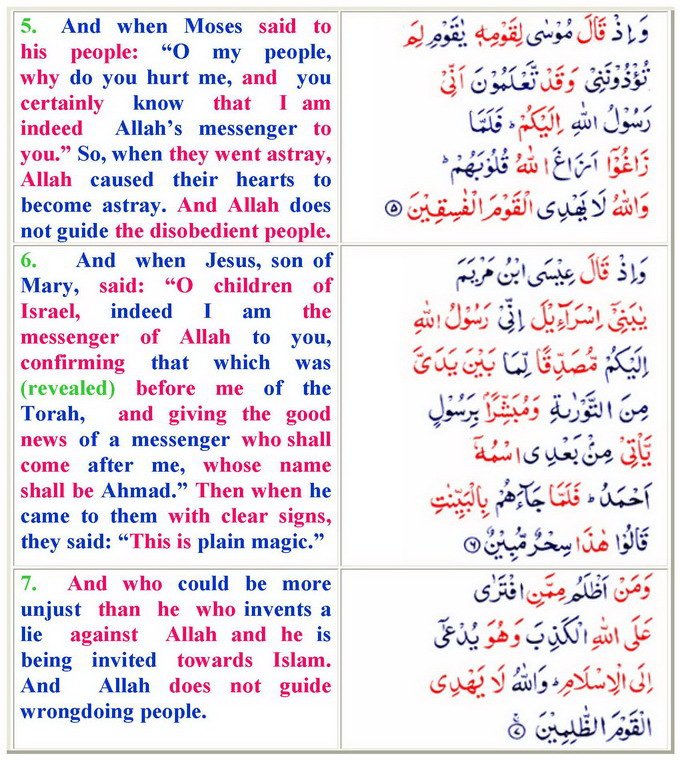 5. And when Moses said to
his people: “O my people,
why do you hurt me, and you
certainly know that I am
indeed Allah’s messenger to
you.” So, when they went astray,
Allah caused their hearts to
become astray. And Allah does
not guide the disobedient people.
وَاِذْ قَالَ مُوْسٰى لِقَوْمِهٖ يٰقَوْمِ لِمَ
تُؤْذُوْنَنِىْ وَقَدْ تَّعْلَمُوْنَ اَنِّىْ
رَسُوْلُ اللّٰهِ اِلَيْكُمْ ؕ فَلَمَّا
زَاغُوْۤا اَزَاغَ اللّٰهُ قُلُوْبَهُمْ ؕ
وَاللّٰهُ لَا يَهْدِى الْقَوْمَ الْفٰسِقِيْنَ ۵
6. And when Jesus, son of
Mary, said: “O children of
Israel, indeed I am the
messenger of Allah to you,
confirming that which was
(revealed) before me of the
Torah, and giving the good
news of a messenger who shall
come after me, whose name
shall be Ahmad.” Then when he
came to them with clear signs,
they said: “This is plain magic.”
وَاِذْ قَالَ عِيْسَى ابْنُ مَرْيَمَ
يٰبَنِىْۤ اِسْرَآءِيْلَ اِنِّىْ رَسُوْلُ اللّٰهِ
اِلَيْكُمْ مُّصَدِّقًا لِّمَا بَيْنَ يَدَىَّ
مِنَ التَّوْرٰىةِ وَمُبَشِّرًۢا بِرَسُوْلٍ
يَّاْتِىْ مِنْۢ بَعْدِى اسْمُهٗۤ
اَحْمَدُ ؕ فَلَمَّا جَآءَهُمْ بِالْبَيِّنٰتِ
قَالُوْا هٰذَا سِحْرٌ مُّبِيْنٌ ۶
7. And who could be more
unjust than he who invents a
lie against Allah and he is
being invited towards Islam.
And Allah does not guide
wrongdoing people.
وَمَنْ اَظْلَمُ مِمَّنِ افْتَرٰى
عَلَى اللّٰهِ الْكَذِبَ وَهُوَ يُدْعٰۤى
اِلَى الْاِسْلَامِ ؕ وَاللّٰهُ لَا يَهْدِى
الْقَوْمَ الظّٰلِمِيْنَ ۷